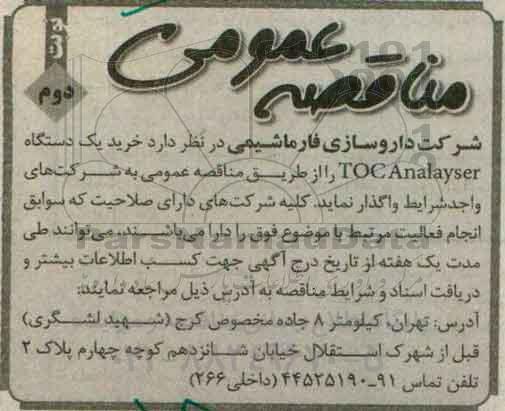 نوبت
دوم
مناقصه عمومی
شرکت داروسازی فارماشیمی در نظر دارد خرید یک دستگاه
TOC Analayser را از طریق مناقصه عمومی به شرکت‌های
واجدشرایط واگذار نماید. کلیه شرکت‌های دارای صلاحیت که سوابق
انجام فعالیت مرتبط با موضوع فوق را دارا می‌باشند، می‌توانند طی
مدت یک هفته از تاریخ درج آگهی جهت کسب اطلاعات بیشتر و
دریافت اسناد و شرایط مناقصه به آدرس ذیل مراجعه نمایند:
آدرس: تهران، کیلومتر ۸ جاده مخصوص کرج (شهید لشگری)
قبل از شهرک استقلال خیابان شانزدهم کوچه چهارم پلاک ۲
تلفن تماس ۹۱-۴۴۵۲۵۱۹۰ (داخلی ۲۶۶)
ParsNamadData